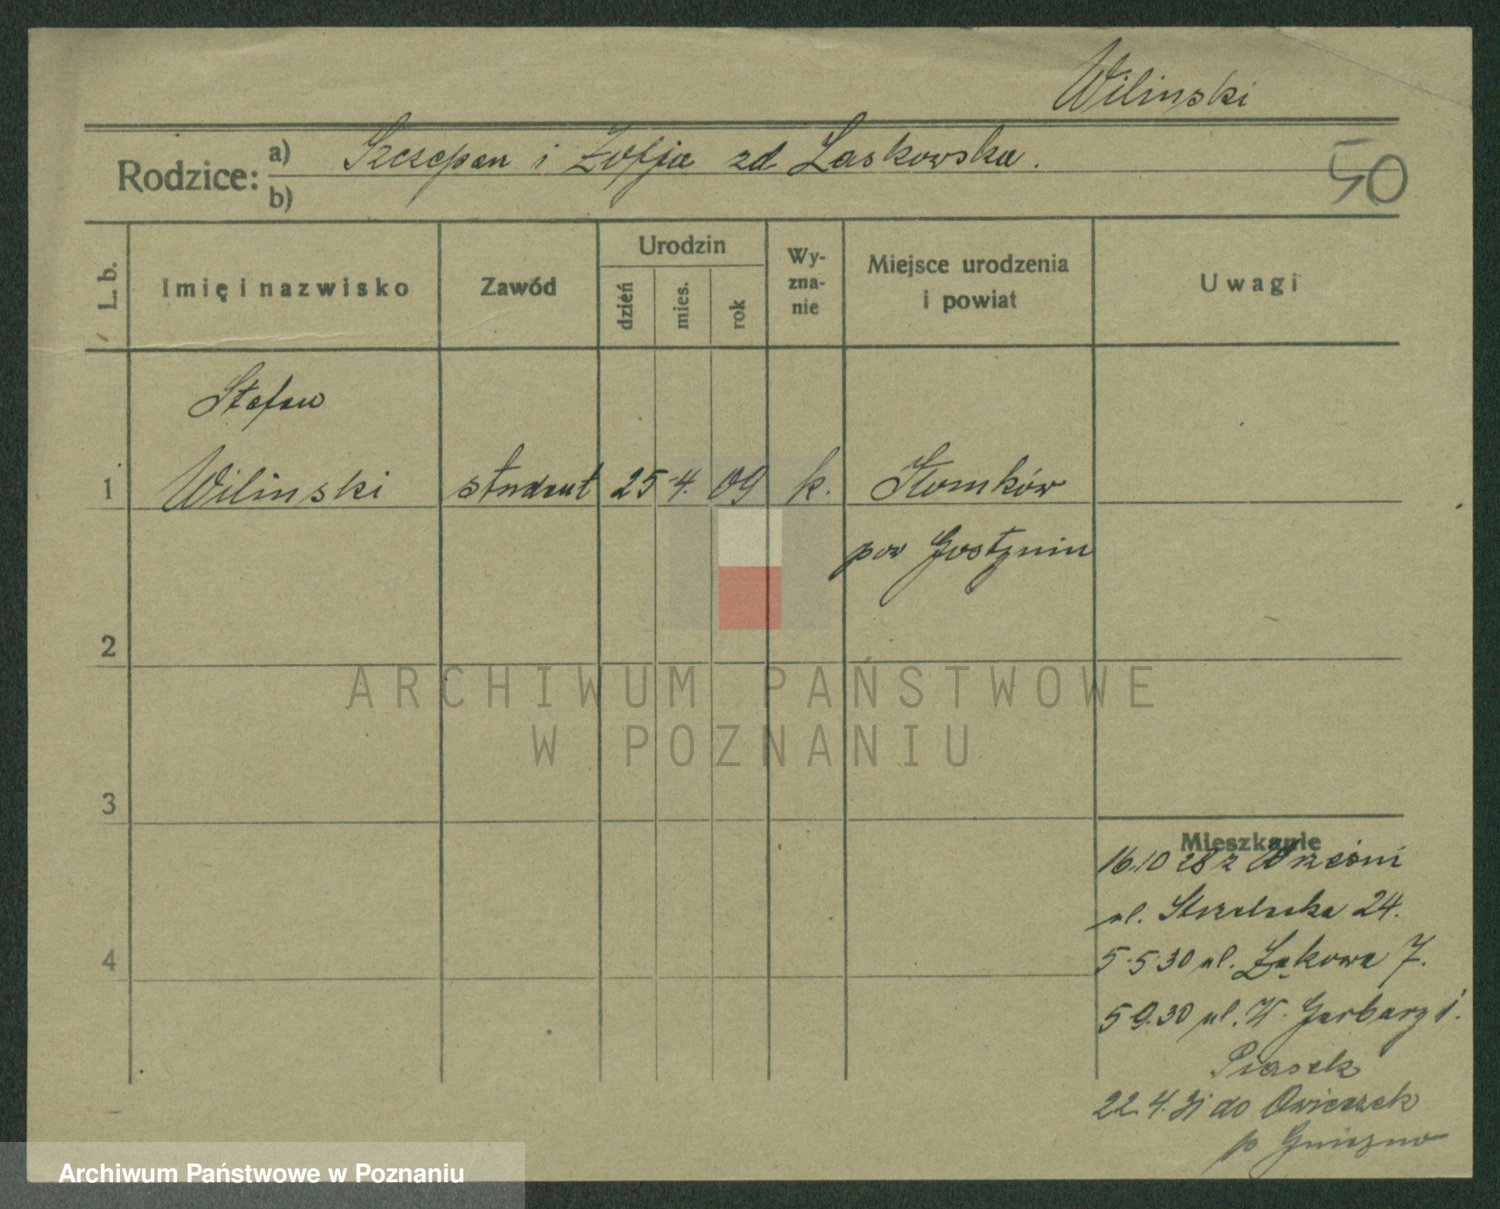 Wilinski
Rodzice: a) Szczepan i Zofja zd Laskowska.
b)
50
L. b.
Imię i nazwisko
Zawód
Urodzin
dzień
mies.
rok
Wy-
zna-
nie
Miejsce urodzenia
i powiat
Uwagi
Stefan
1 Wilinski student 25 4. 09 k.
pow Gostynin
2
3
4
ARCHIWUM PAŃSTWOWE
W POZNANIU
Mieszkanie
16.10 28 z Wrześni
ul. Strzelecka 24.
5.5.30 ul. Łąkowa 7.
5.9.30 ul. W. Garbary 1.
Piasek
22.4.31 do Owieczek
p Gniezno
Archiwum Państwowe w Poznaniu